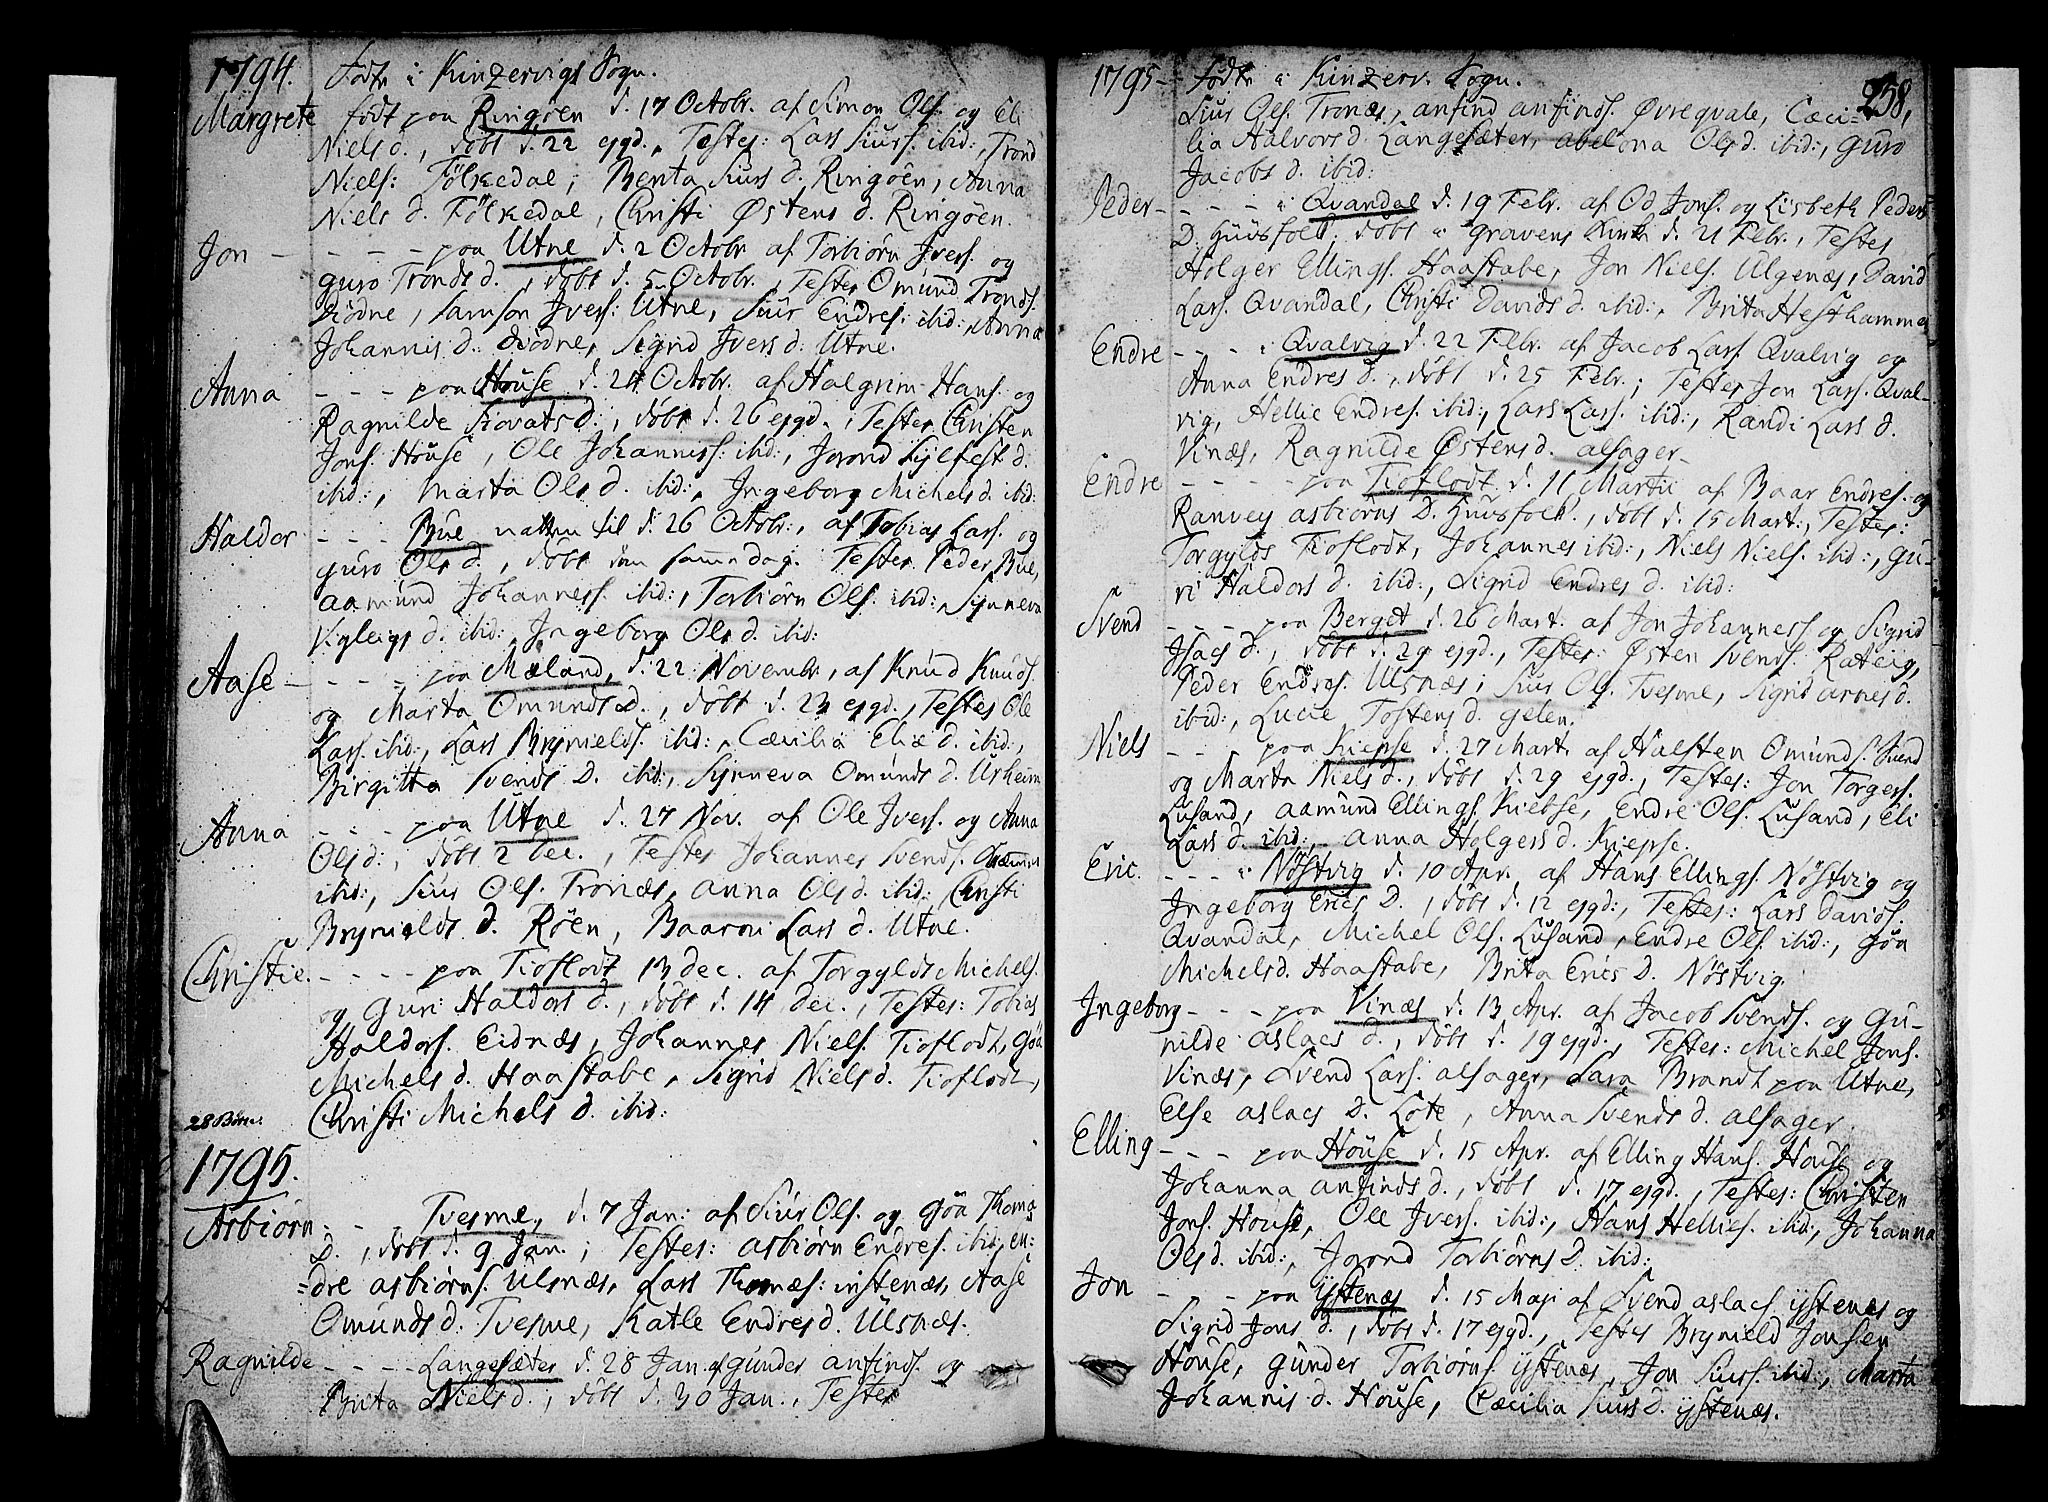 1794. Födte i Kinzervigs Sogn.
Margrete födt paa Ringöen d. 17 Octobr. af Simon Ols. og Eli
Niels d., döbt d. 22 ejgd., Testes: Lars Siurs. ibid:, Trond
Niels: Fölkedal, Benta Siurs d. Ringöen, Anna
Niels d. Fölkedal, Christi Østens d. Ringöen.
Jon - - - - paa Utne d. 2 Octobr. af Torbiörn Ivers. og
Guro Tronds d., döbt d. 5 Octobr., Testes Omund Tronds.
Diödne, Samson Ivers: Utne, Siur Endres: ibid:, Anna
Johannis d. Diödne, Sigrid Ivers d: Utne.
Anna - - - paa House d. 24 Octobr. af Halgrim Hans. og
Ragnilde Siovats d., döbt d. 26 ejgd., Testes Christen
Jons. House, Ole Johanness. ibid:, Jorond Sylfest d.
ibid:, Marta Ols d. ibid:, Ingeborg Michels d. ibid:
Haldor - - - Bue natten til d. 26 Octobr:, af Tobias Lars. og
Guro Ols d., döbt samme dag. Testes Peder Bue,
Aamund Johanness. ibid:, Torbiörn Ols. ibid:, Synneva
Vigleigs d. ibid: Ingeborg Ols d. ibid:
Aase - - - - paa Mæland, d. 22 Novembr., af Knud Knuds.
og Marta Omunds D., döbt d. 23 ejgd., Testes Ole
Lars. ibid:, Lars Brynields. ibid:, Cæcilia Eliæ d. ibid:,
Birgitta Svends D. ibid:, Synneva Omunds d. Urheim
Anna - - - paa Utne d. 27 Nov. af Ole Ivers. og Anna
Ols d:, döbt 2 Dec., Testes Johannes Svends.
ibid:, Siur Ols. Tronæs, Anna Ols d. ibid: Christi
Brynields d. Röen, Baaroni Lars d. Utne.
Christie. - - - - paa Tioflodt 13 Dec. af Torgylds Michels.
og Guri Haldors d., döbt d. 14 Dec., Testes: Tobias
Haldors. Eidnæs, Johannes Niels. Tioflodt, Göa
Michels d. Haastabe, Sigrid Niels d. Tioflodt,
Christi Michels d. ibid:
28 Börn.
1795.
Asbiörn - - Tvesme, d. 7 Jan: af Siur Ols. og Göa Thomæ
D., döbt d. 9 Jan.; Testes: Asbiörn Endres. ibid:, En=
=dre Asbiörns. Ulsnæs, Lars Thomæs: ystenæs, Aase
Omunds d: Tvesme, Katle Endres d. Ulsnæs.
Ragnilde - - - - Langesæter d. 28 Jan. af Gunder Anfinds. og
Brita Niels d., döbt d. 30 Jan., Testes
1795 - Födte i Kinzerv. Sogn. 258.
Siur Ols. Tronæs, Anfind Anfinds. Øvreqvale, Cæci=
lia Halvors d. Langesæter, Abelona Ols d. ibid:, Guro
Jacobs d. ibid:
Peder - - - - i Qvandal d. 19 Febr. af Od Jons. og Lisbeth Peders
D. Huusfolk, döbt i Gravens Kirke d. 21 Febr., Testes
Holger Ellings. Haastabe, Jon Niels. Ulgenæs, David
Lars. Qvandal, Christi Davids d. ibid:, Brita Hesthammer
Endre - - - i Qvalvig d. 22 Febr. af Jacob Lars. Qvalvig og
Anna Endres d., döbt d. 25 Febr.; Testes Jon Lars. Qval-
vig, Hellie Endres. ibid:, Lars Lars. ibid:, Randi Lars d.
Vinæs, Ragnilde Østens d. Alsager -
Endre - - - - - paa Tioflodt d. 11 Martii af Baar Endres. og
Ranvey Asbiörns D. Huusfolk., döbt d. 15 Mart:, Testes:
Torgylds Tioflodt, Johannes ibid:, Niels Niels. ibid:, Gu-
ri Haldors d. ibid:, Sigrid Endres d. ibid:
Svend - - - paa Berget d. 26 Mart. af Jon Johanness. og Sigrid
Isacs d., döbt d. 29 ejgd., Testes: Østen Svends. Rateig,
Peder Endres. Ulsnæs, Siur Ols. Tvesme, Sigrid Arnes d.
ibid:, Lucie Tostens d. Gelen.
Niels - - - paa Kiepse d. 27 Mart. af Halsten Omunds.
og Marta Niels d., döbt d. 29 ejgd., Testes: Jon Torgers.
Lusand, Aamund Ellings. Kiebse, Endre Ols. Lusand, Eli
Lars d. ibid:, Anna Holgers d. Kiepse.
Eric. - - - i Nöstvig d. 10 Apr. af Hans Ellings. Nöstvig og
Ingeborg Erics D., döbt d. 12 ejgd:, Testes: Lars Davids.
Qvandal, Michel Ols. Lusand, Endre Ols. ibid:, Göa
Michels d. Haastabe, Brita Erics D. Nöstvig.
Ingeborg - - - paa Vinæs d. 13 Apr. af Jacob Svends. og Gu-
nilde Aslacs d., döbt d. 19 ejgd., Testes: Michel Jons.
Vinæs, Svend Lars. Alsager, Sara Brandt paa Utne,
Else Aslacs D. Lote, Anna Svends d. Alsager.
Elling - - - paa House d. 15 Apr. af Elling Hans. House og
Johanna Anfinds d., döbt d. 17 ejgd., Testes: Christen
Jons. House, Ole Ivers. ibid:, Hans Hellies. ibid:, Johanna
Ols d. ibid:, Jorond Torbiörns D. ibid:
Jon - - - paa ystenæs d. 15 Maji af Svend Aslacs. ystenæs og
Sigrid Jons d., döbt d. 17 ejgd., Testes Brynield Jonsen
House, Gunder Torbiörns. ystenæs, Jon Siurs. ibid:, Marta
Johannis d. House, Cæcilia Siurs d. ystenæs.